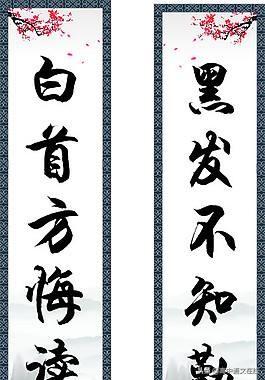 黑发不知勤
白首方悔读